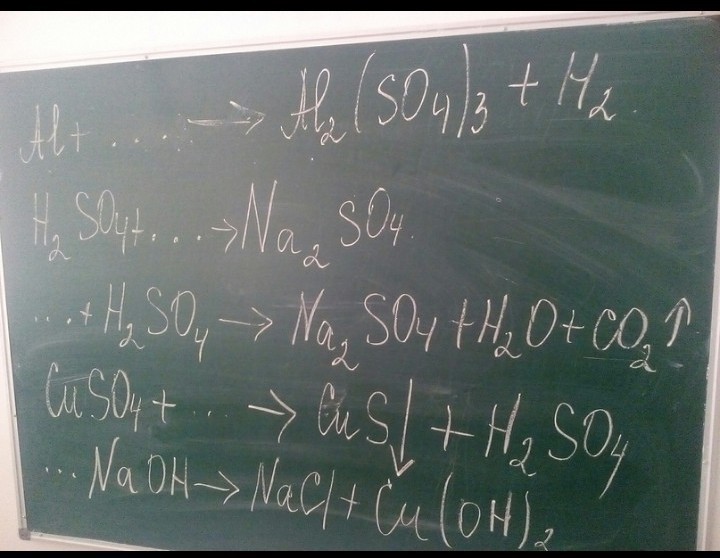 Al + .... → Al₂(SO₄)₃ + H₂
H₂SO₄ + .... → Na₂SO₄
.... + H₂SO₄ → Na₂SO₄ + H₂O + CO₂↑
CuSO₄ + ... → CuS↓ + H₂SO₄
... NaOH → NaCl + Cu(OH)₂